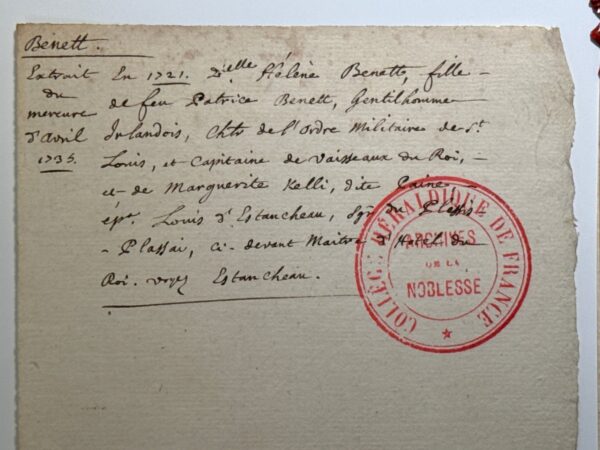 Benett.
Extrait
du
mercure
d'avril
1735.
En 1721. Delle Hélène Benett, fille -
de feu Patrice Benett, Gentilhomme
Irlandois, Chlr de l'Ordre Militaire de St.
Louis, et Capitaine de Vaisseaux du Roi, -
et de Marguerite Kelli, dite
épa. Louis d'Estancheau, Sgr. du Plessis
- Plassai, ci-devant Maitre d'Hotel du
Roi. voyez Estancheau.
COLLEGE HERALDIQUE DE FRANCE
ARCHIVES
DE LA
NOBLESSE